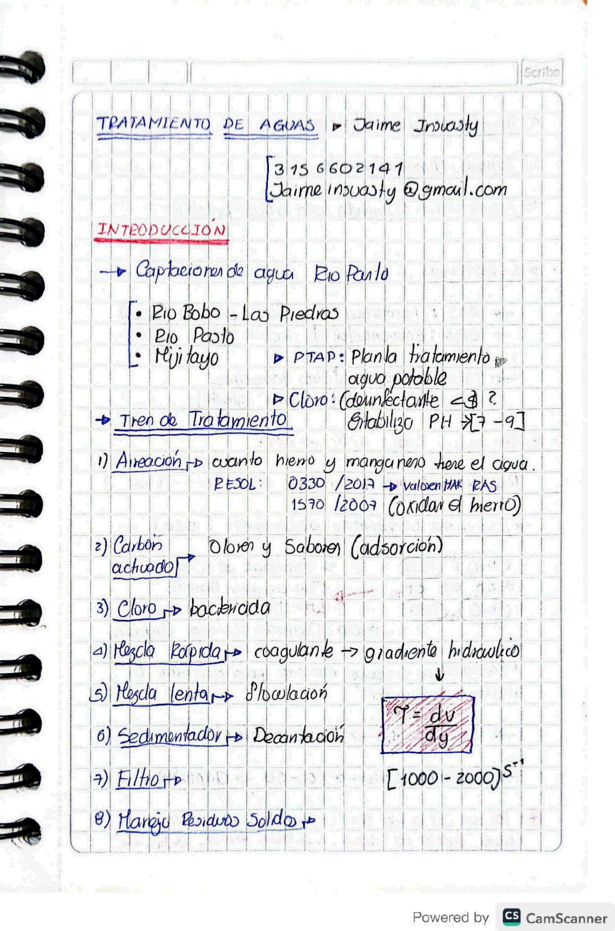 Scribe
TRATAMIENTO DE AGUAS ▸ Jaime Insuasty
3156602141
Jaimeinsuasty@gmail.com
INTRODUCCIÓN
→ Captaciones de agua Rio Pasto
• Rio Bobo - Las Piedras
• Rio Pasto
• Mijitayo
▸ PTAP: Planta tratamiento
agua potable
▸ Cloro: (desinfectante <$ ?
Estabiliza PH → [7 - 9]
→ Tren de Tratamiento
1) Aireación → cuanto hierro y manganeso tiene el agua.
RESOL: 0330 / 2017 → valores MAX RAS
1570 / 2007 (oxidar el hierro)
2) Carbón activado → Olores y Sabores (adsorción)
3) Cloro → bactericida
4) Mezcla Rápida → coagulante → gradiente hidraulico
5) Mezcla lenta → floculación
τ = dv/dy
6) Sedimentador → Decantación
7) Filtro →
[1000 - 2000] s⁻¹
8) Manejo Residuos Solidos →
Powered by CS CamScanner